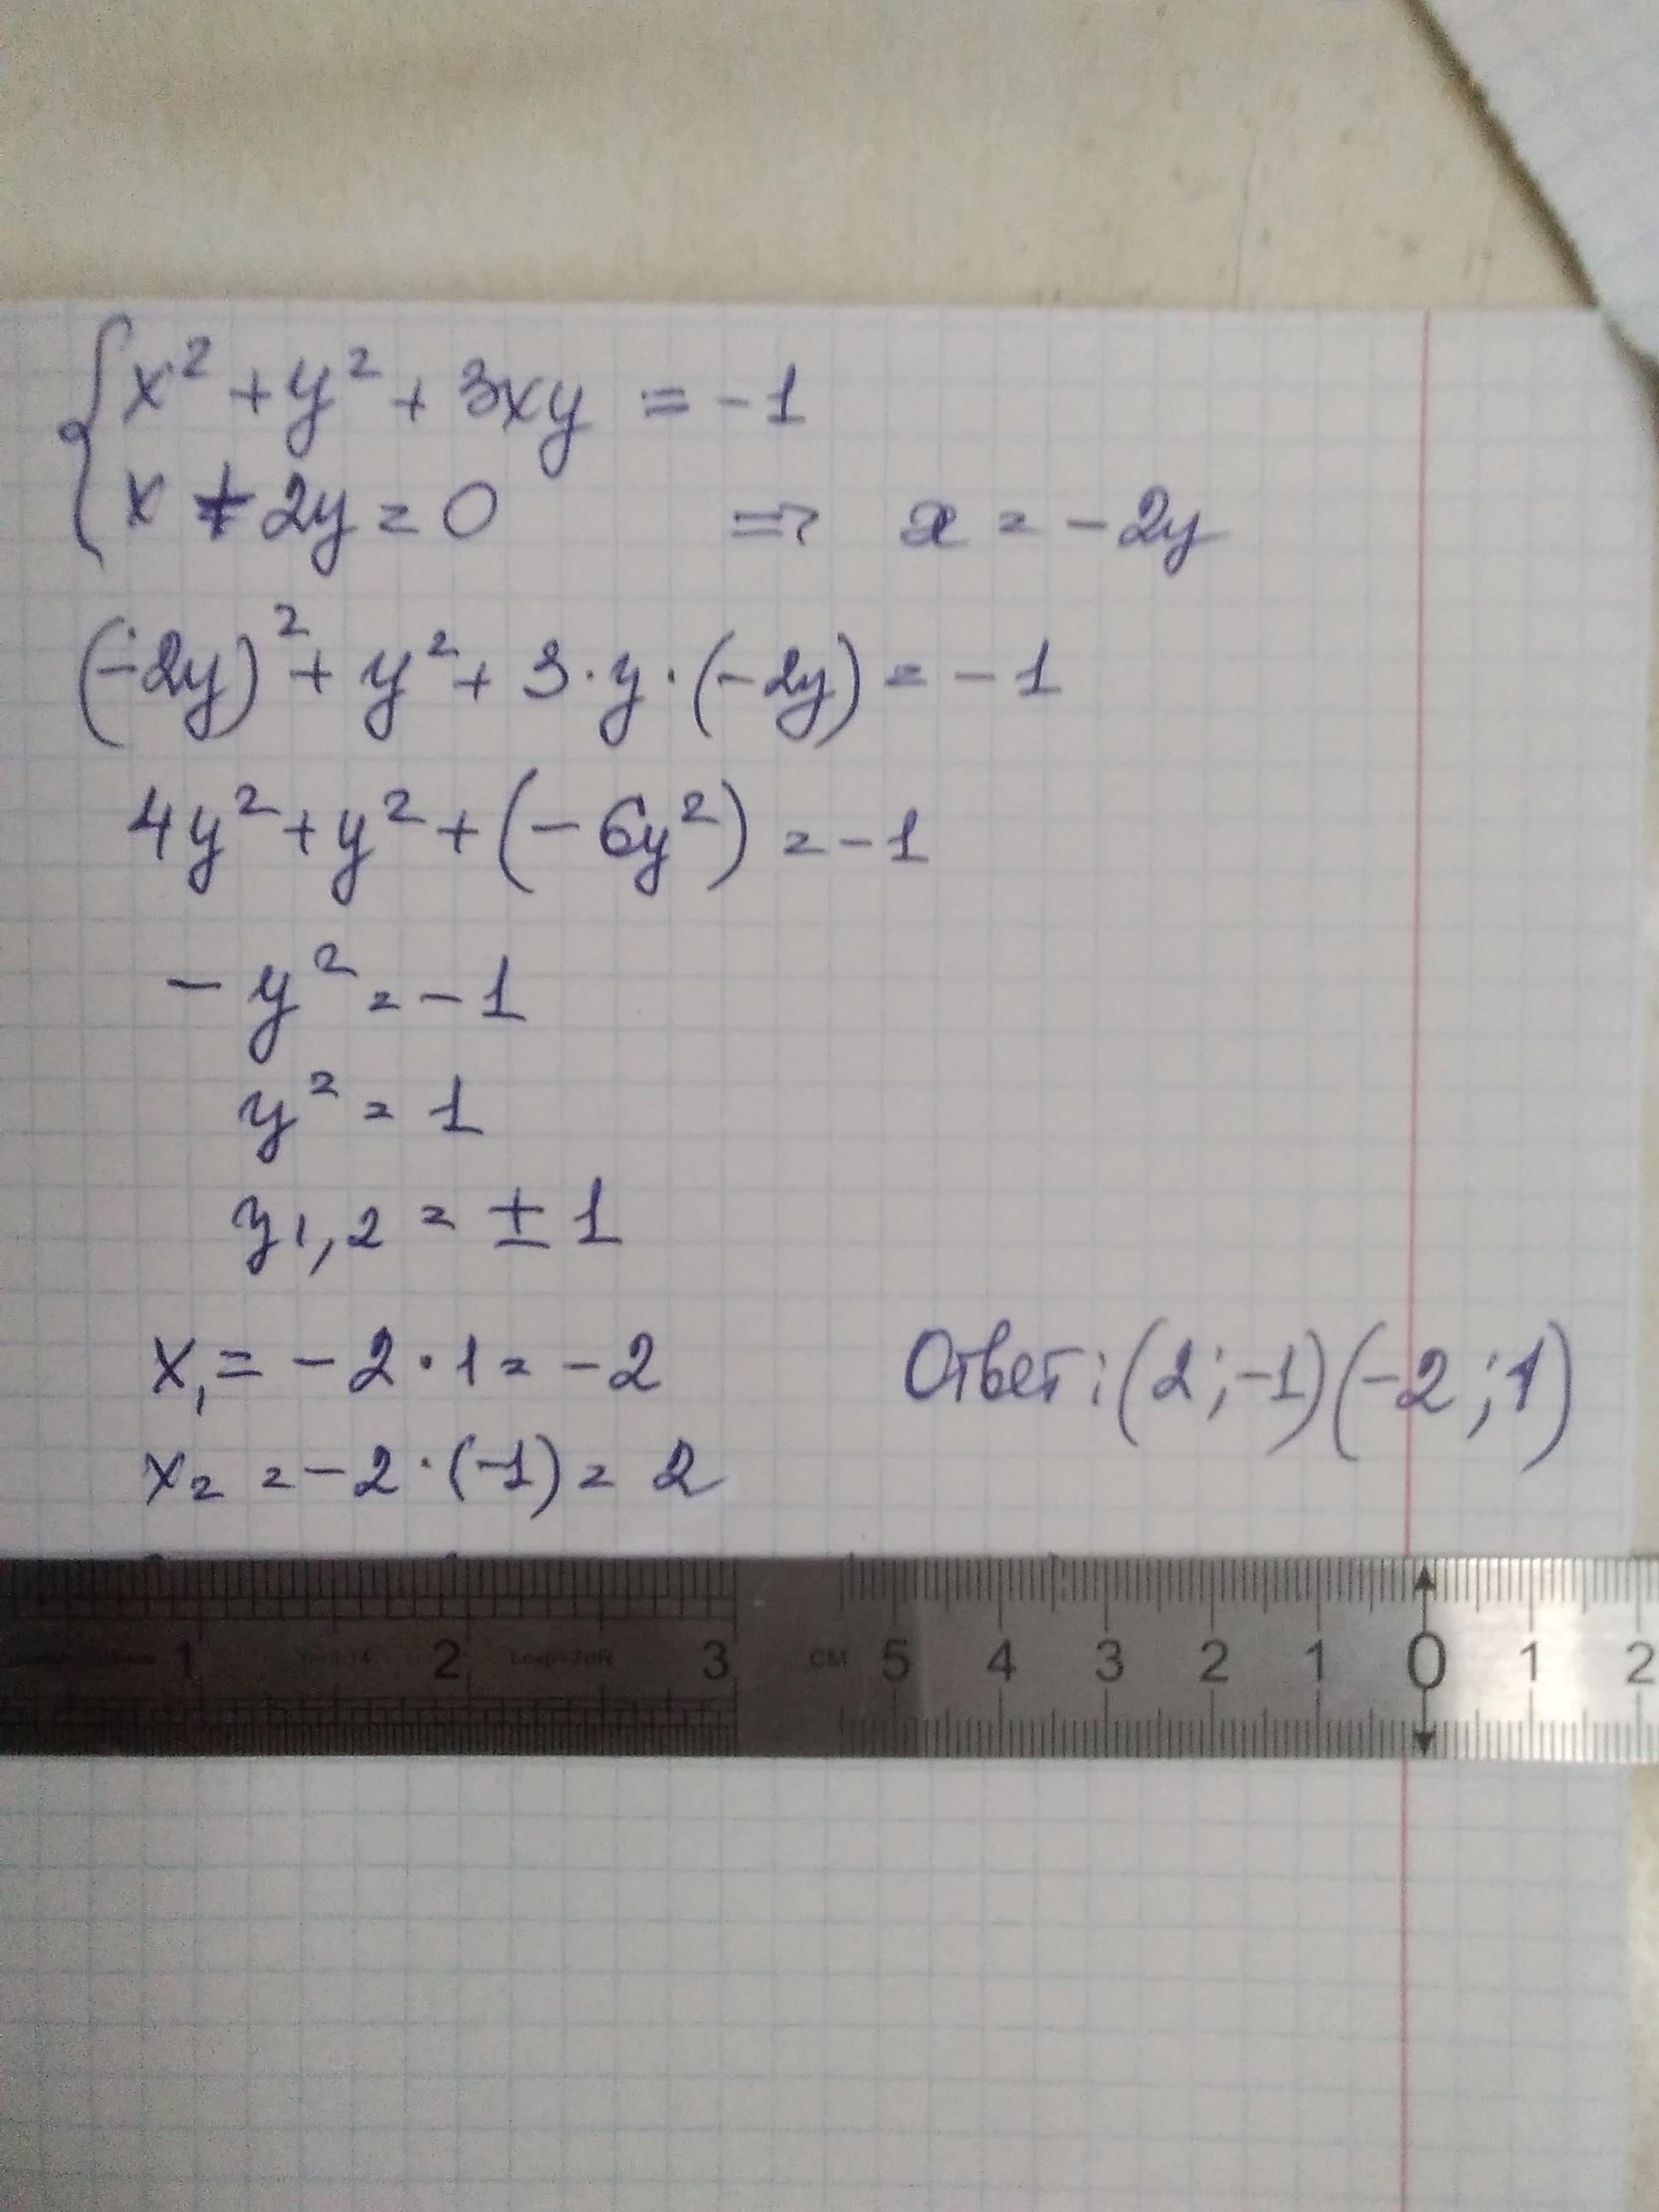 { x² + y² + 3xy = -1
x + 2y = 0 ⇒ x = -2y
(-2y)² + y² + 3·y·(-2y) = -1
4y² + y² + (-6y²) = -1
- y² = -1
y² = 1
y1,2 = ± 1
x₁ = -2·1 = -2
x₂ = -2·(-1) = 2
Ответ: (2;-1)(-2;1)
1 2 3 см 5 4 3 2 1 0 1 2